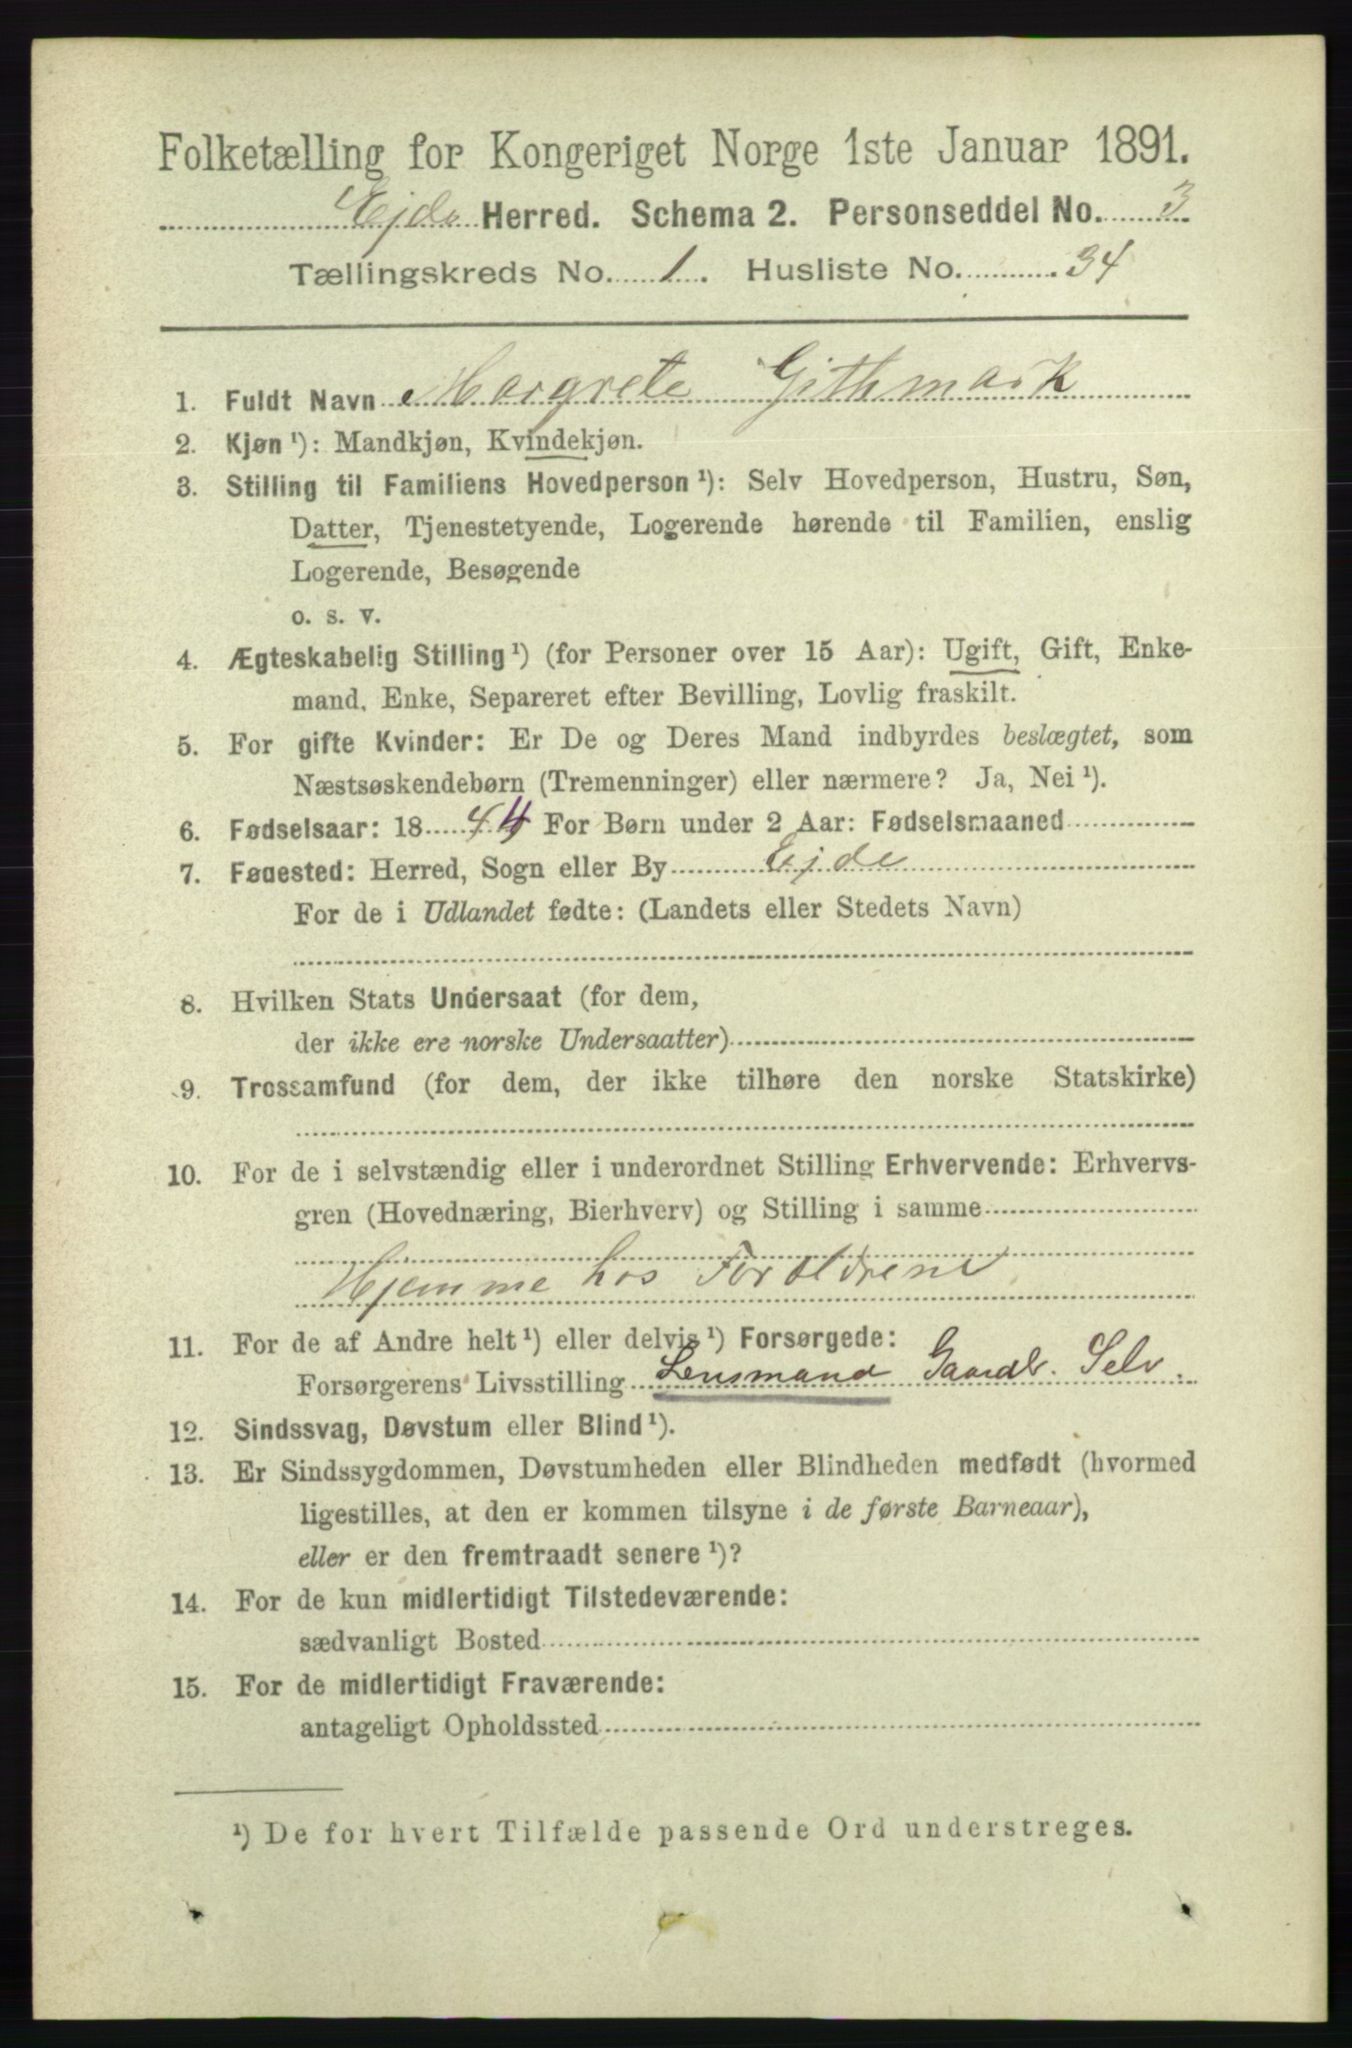 Folketælling for Kongeriget Norge 1ste Januar 1891.
Ejde Herred. Schema 2. Personseddel No. 3
Tællingskreds No. 1. Husliste No. 34
1. Fuldt Navn Margrete Githmark
2. Kjøn ¹): Mandkjøn, Kvindekjøn.
3. Stilling til Familiens Hovedperson ¹): Selv Hovedperson, Hustru, Søn,
Datter, Tjenestetyende, Logerende hørende til Familien, enslig
Logerende, Besøgende
o. s. v.
4. Ægteskabelig Stilling ¹) (for Personer over 15 Aar): Ugift, Gift, Enke-
mand, Enke, Separeret efter Bevilling, Lovlig fraskilt.
5. For gifte Kvinder: Er De og Deres Mand indbyrdes beslægtet, som
Næstsøskendebørn (Tremenninger) eller nærmere? Ja, Nei ¹).
6. Fødselsaar: 18 44 For Børn under 2 Aar: Fødselsmaaned
7. Fødested: Herred, Sogn eller By Ejde
For de i Udlandet fødte: (Landets eller Stedets Navn)
8. Hvilken Stats Undersaat (for dem,
der ikke ere norske Undersaatter)
9. Trossamfund (for dem, der ikke tilhøre den norske Statskirke)
10. For de i selvstændig eller i underordnet Stilling Erhvervende: Erhvervs-
gren (Hovednæring, Bierhverv) og Stilling i samme
Hjemme hos Forældrene
11. For de af Andre helt ¹) eller delvis ¹) Forsørgede:
Forsørgerens Livsstilling Lensmand Gaardb. Selv.
12. Sindssvag, Døvstum eller Blind ¹).
13. Er Sindssygdommen, Døvstumheden eller Blindheden medfødt (hvormed
ligestilles, at den er kommen tilsyne i de første Barneaar),
eller er den fremtraadt senere ¹)?
14. For de kun midlertidigt Tilstedeværende:
sædvanligt Bosted
15. For de midlertidigt Fraværende:
antageligt Opholdssted
¹) De for hvert Tilfælde passende Ord understreges.